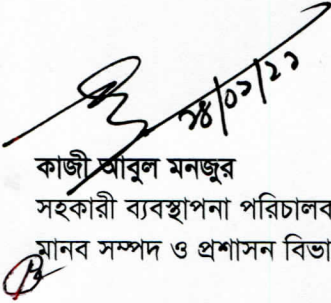 কাজী আবুল মনজুর
সহকারী ব্যবস্থাপনা পরিচালক
মানব সম্পদ ও প্রশাসন বিভা